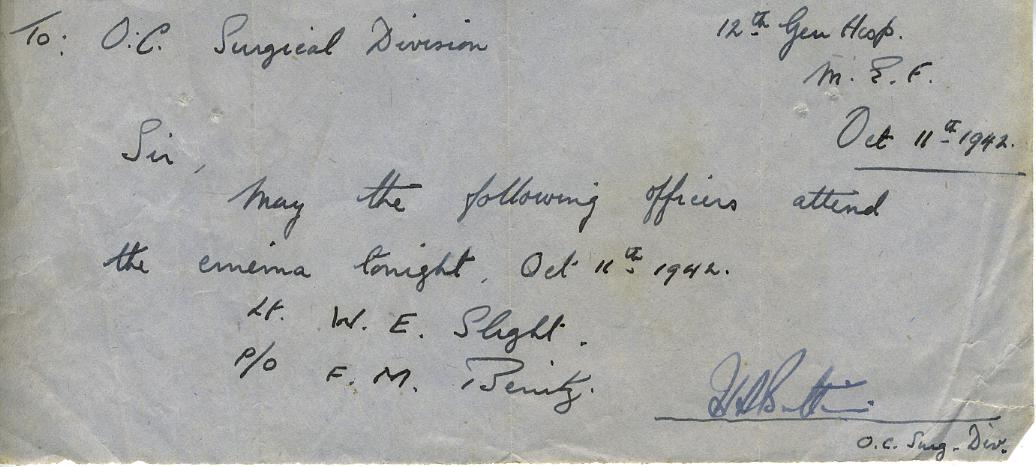 To: O.C. Surgical Division
12th Gen Hosp.
M. E. F.
Oct 11th 1942.
Sir,
May the following officers attend
the cinema tonight, Oct 11th 1942.
Lt. W. E. Slight.
P/O F. M. Benitz.
O.C. Surg. Div.